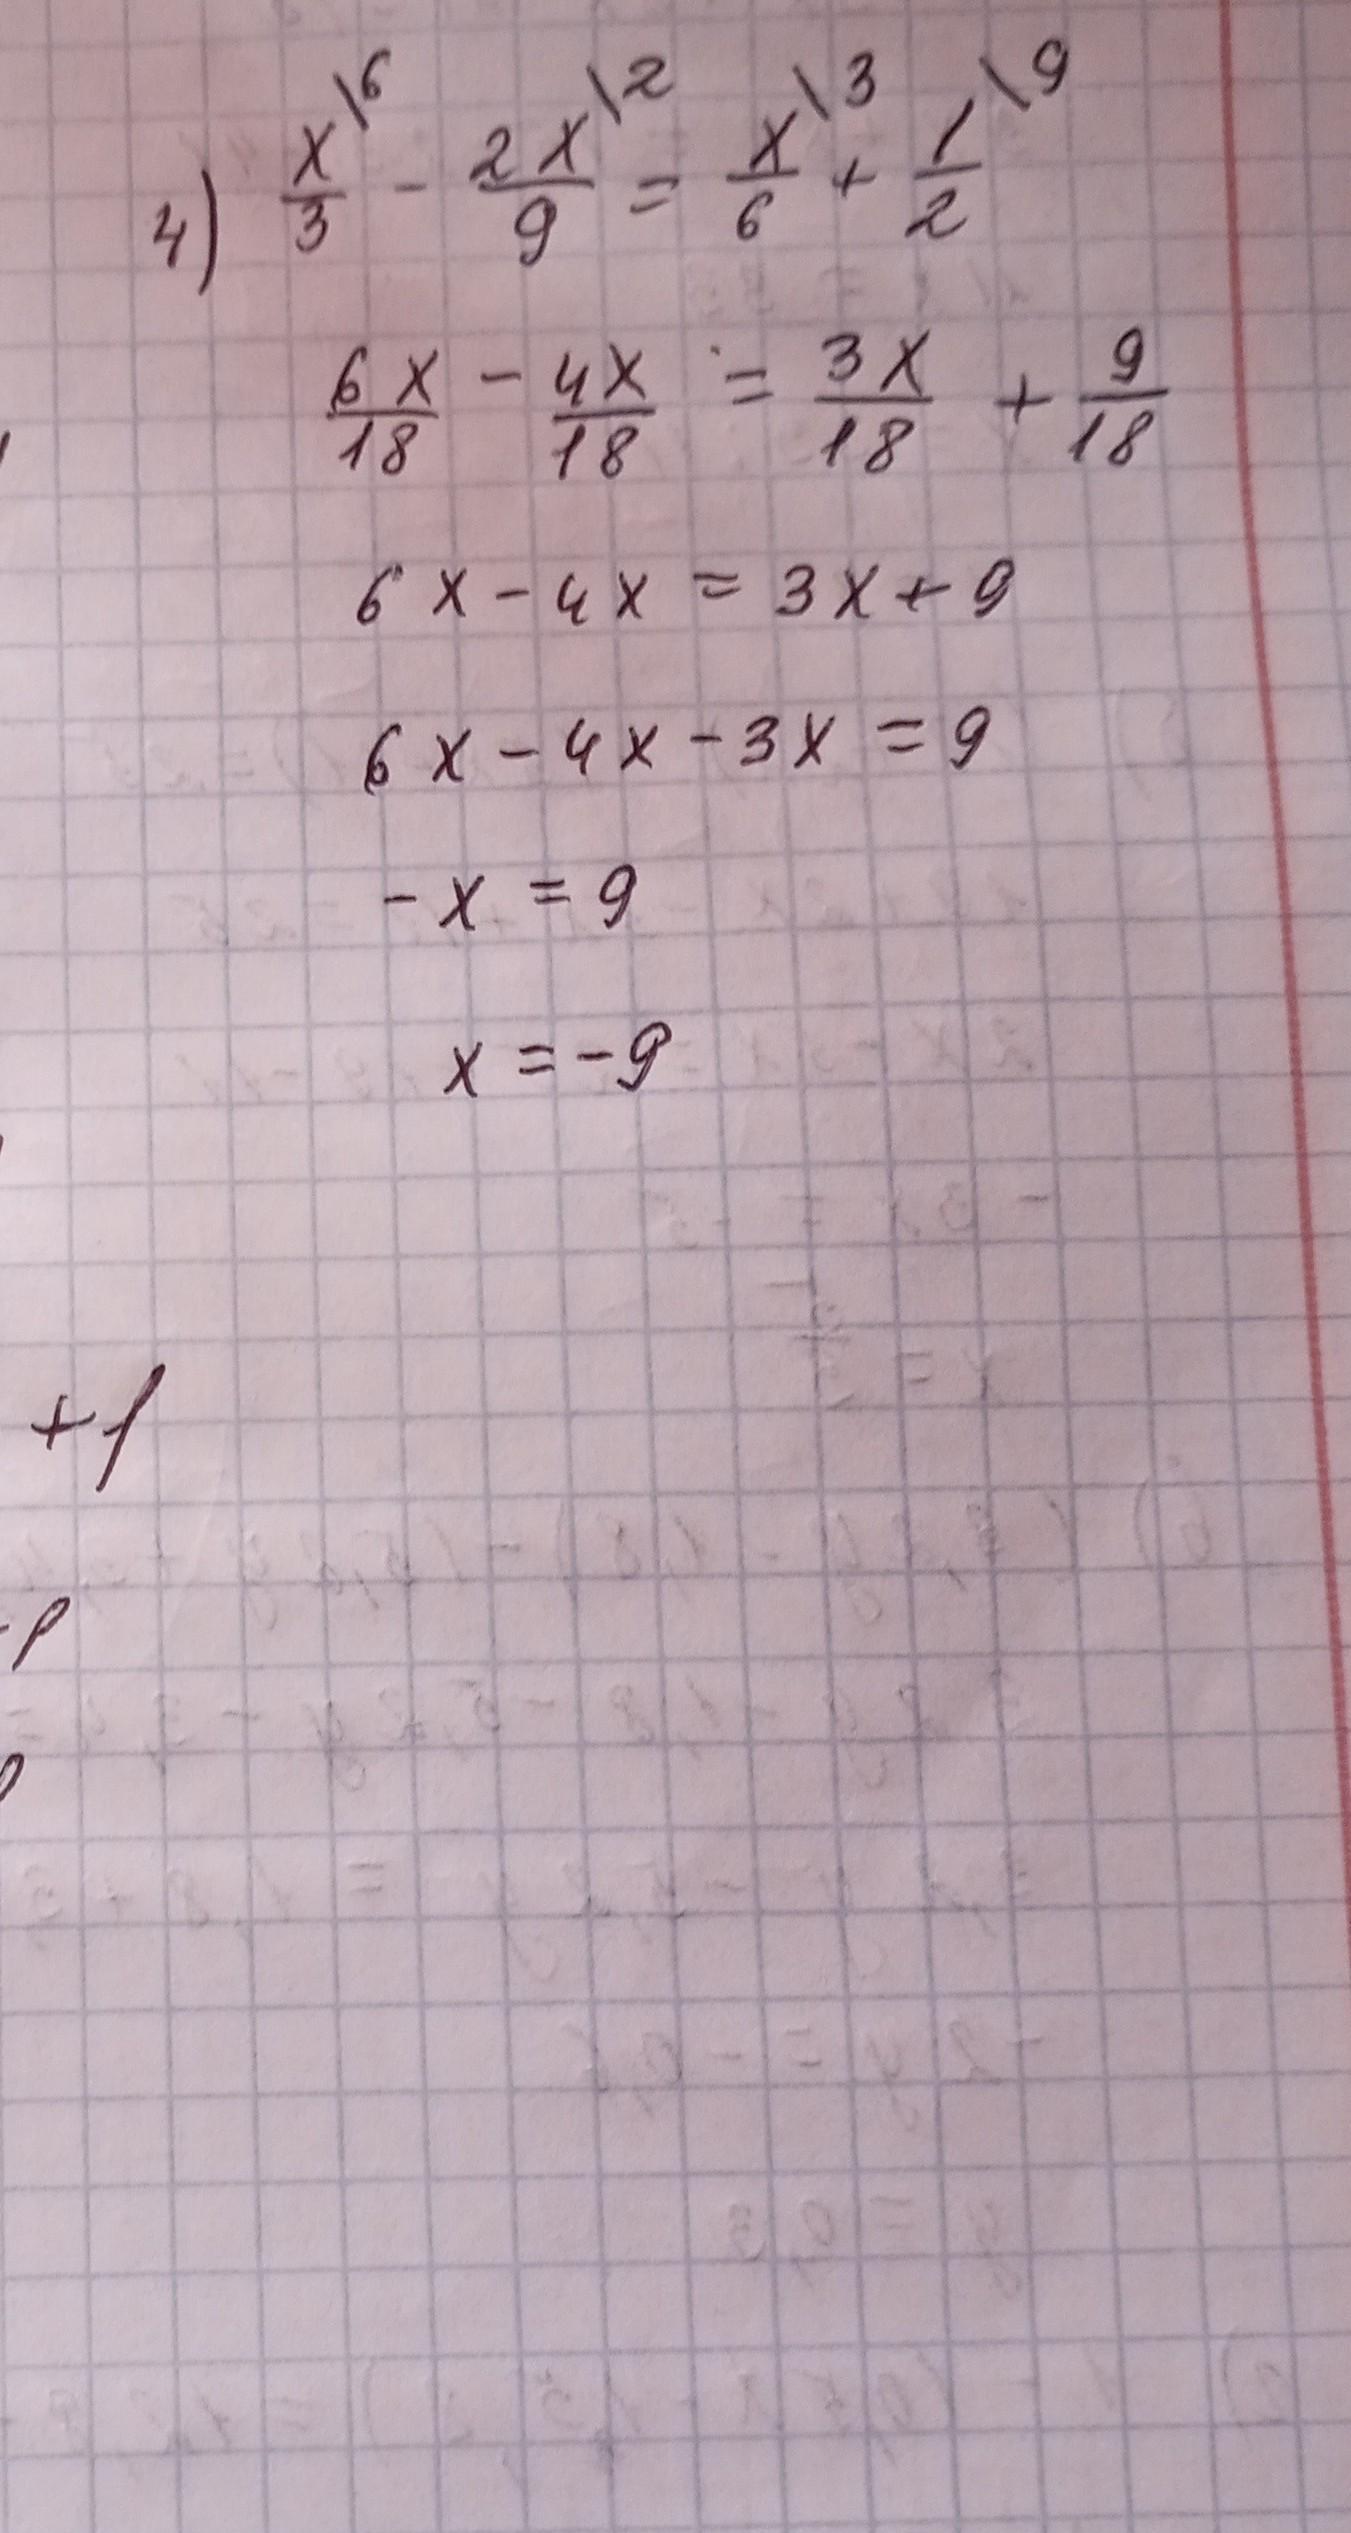 4) x/3 \6 - 2x/9 \2 = x/6 \3 + 1/2 \9
6x/18 - 4x/18 = 3x/18 + 9/18
6x - 4x = 3x + 9
6x - 4x - 3x = 9
-x = 9
x = -9
+1